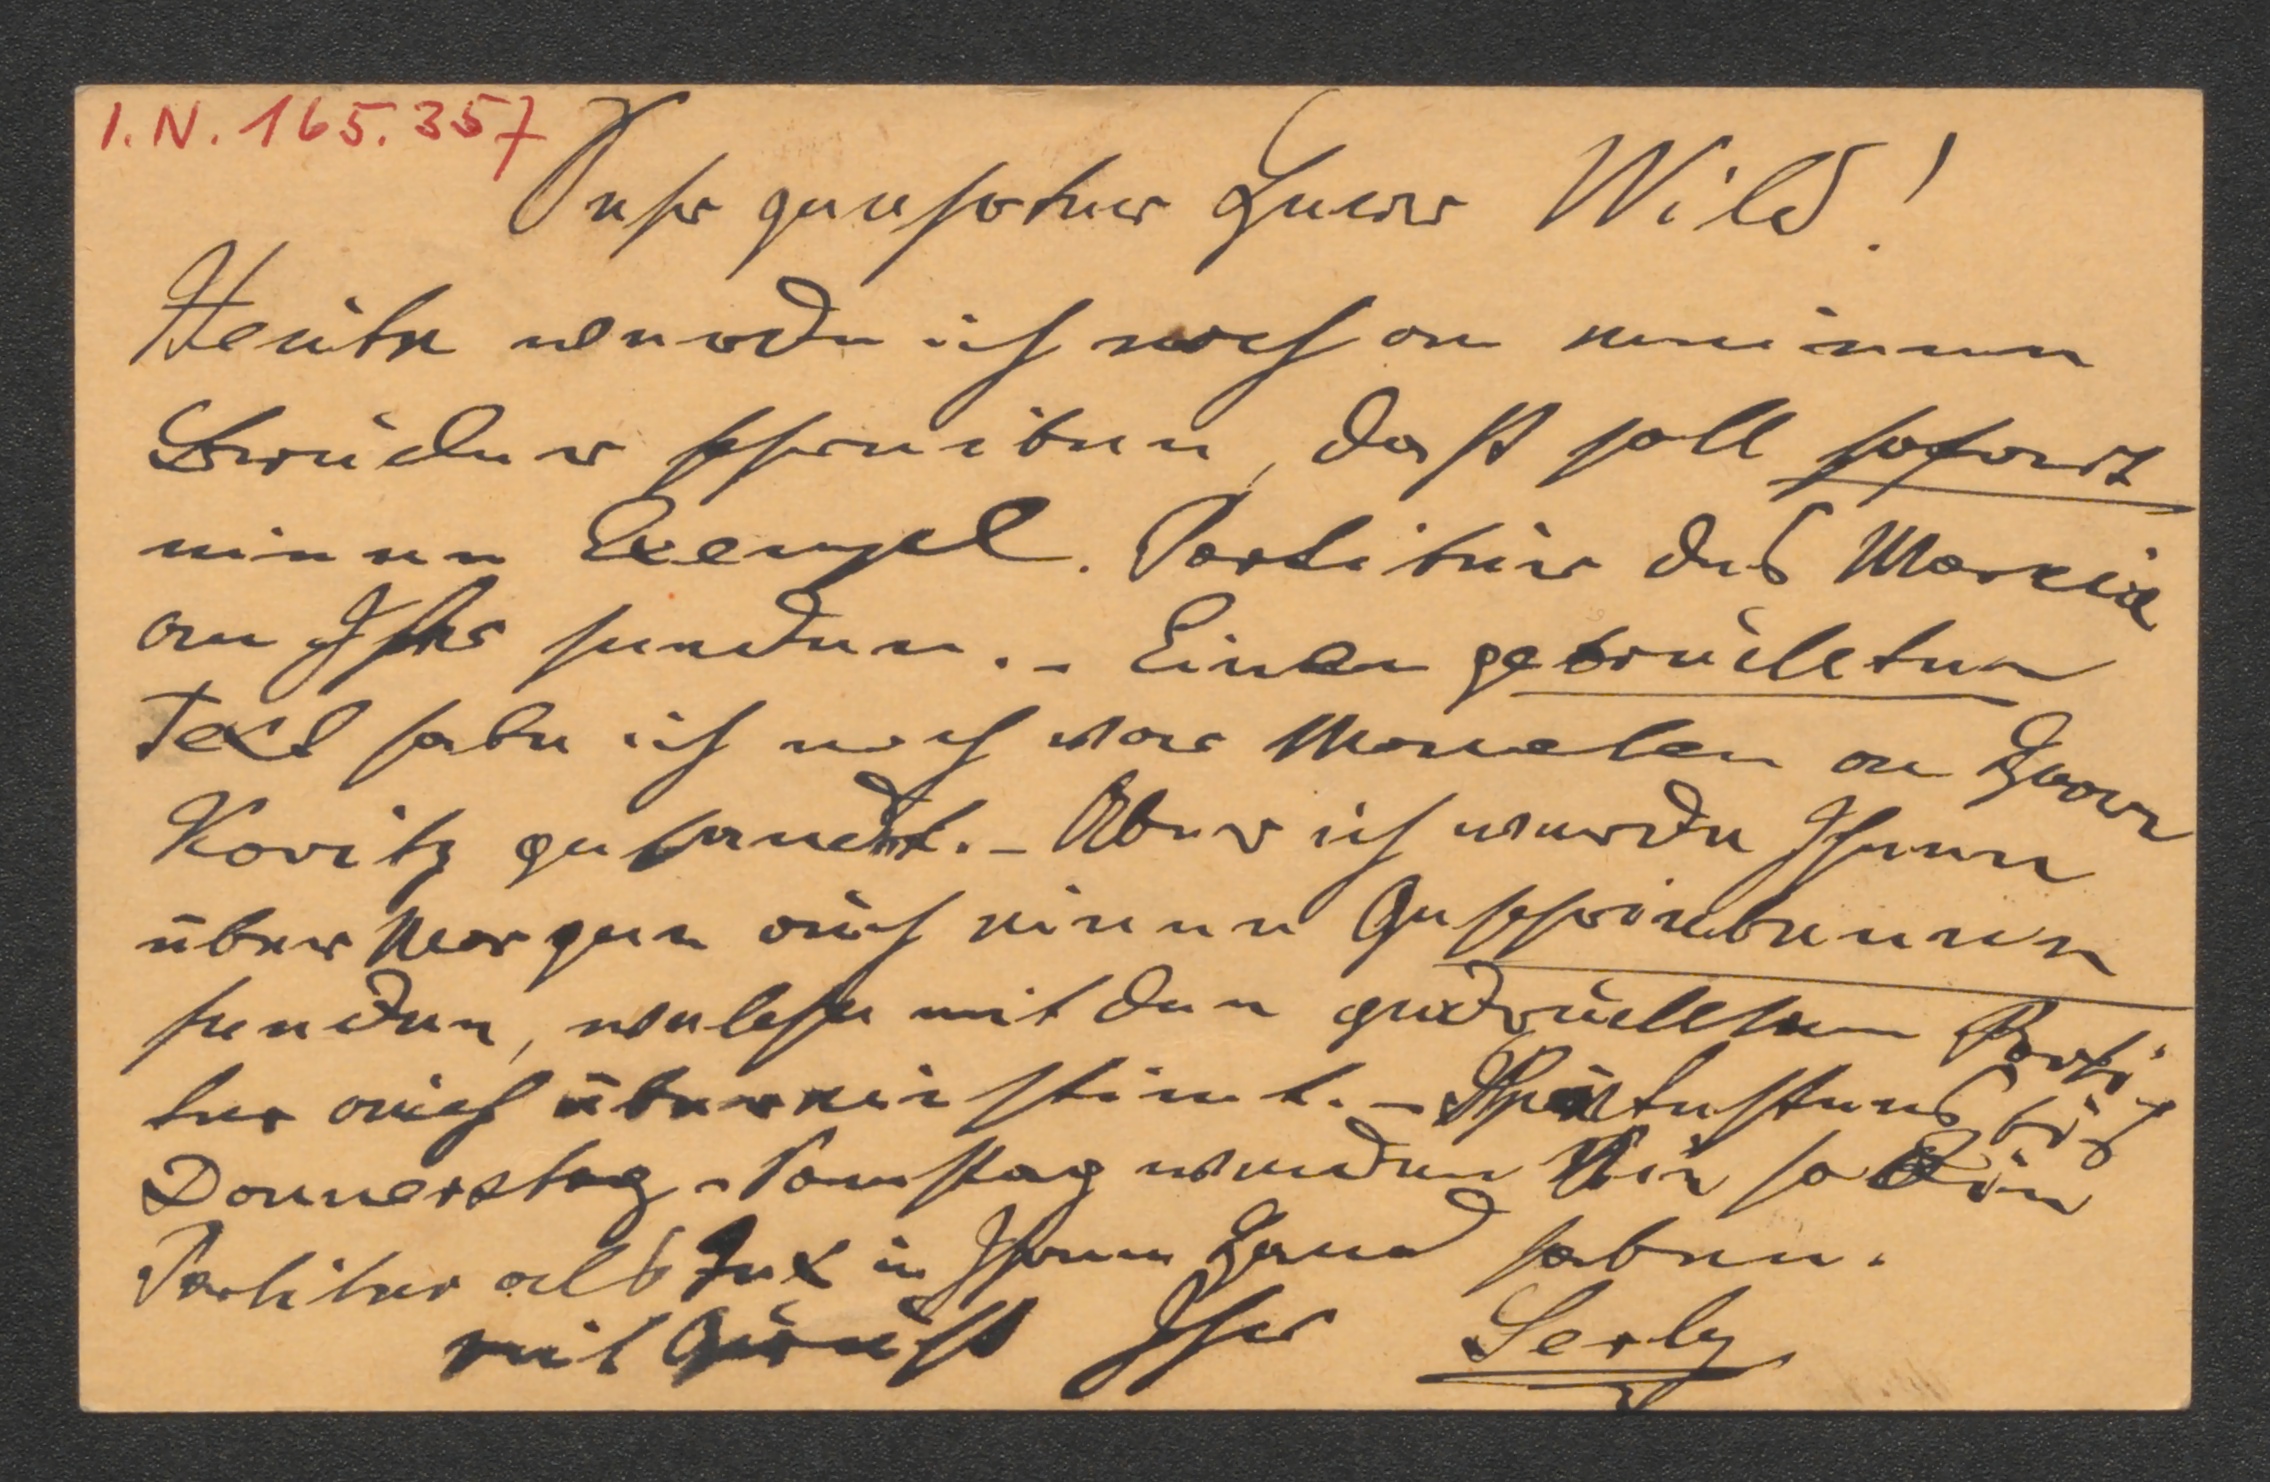 I.N. 165.357
Sehr geehrter Herr Wild!
Heute werde ich noch an meinen
Bruder schreiben, daß soll sofort
einen Exempl. Partitur des
an Ihr senden. - Einen gedruckten
Text habe ich noch vor Monaten an Herr
Kovitz gesandt. - Aber ich werde Ihnen
übermorgen auch einen Geschriebenen
senden, welche mit den gedruckten Parti-
tur auch übereinstimt. - Spätestens bis
Donnerstag - Samstag werden Sie so
Partitur als Text in Ihren Hand haben.
mit Gruß Ihr Serly